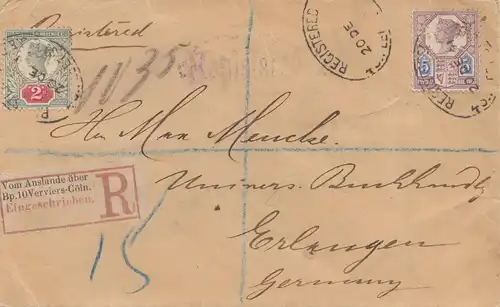 Registered
1135
REGISTERED
20 DE
2d
5d 5d
Herrn Max Mencke.
Vom Auslande über
Bp.10 Verviers-Cöln.
Eingeschrieben.
R
Univers. Buchhandlg
15
Erlangen
Germany